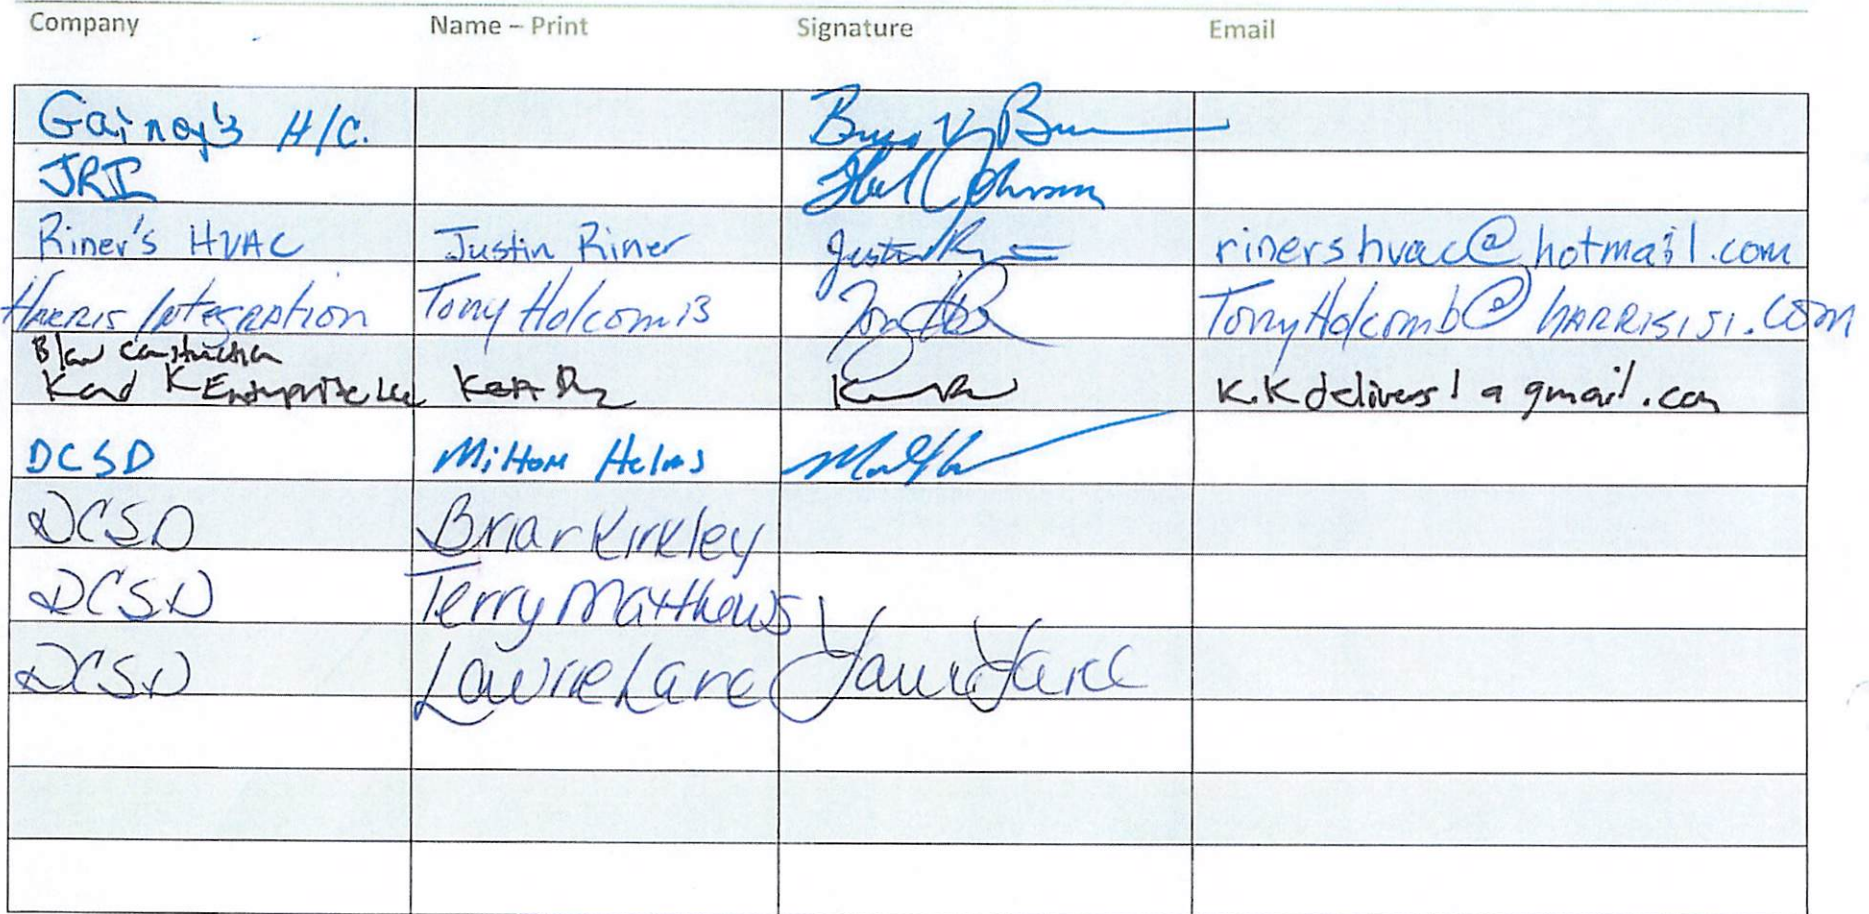 Company Name – Print Signature Email
Gainey's H/C.
JRI Johnson
Riner's HVAC Justin Riner Justin rinershvac@hotmail.com
HARRIS Integration Tony Holcomb TonyHolcomb@HARRISISI.com
Construction
K and K Enterprise K.Kdelivers1@gmail.com
DCSD Milton Helms
DCSD Brian Kirkley
DCSD Terry Matthews
DCSD Lawrie Lane Lawrie Lane